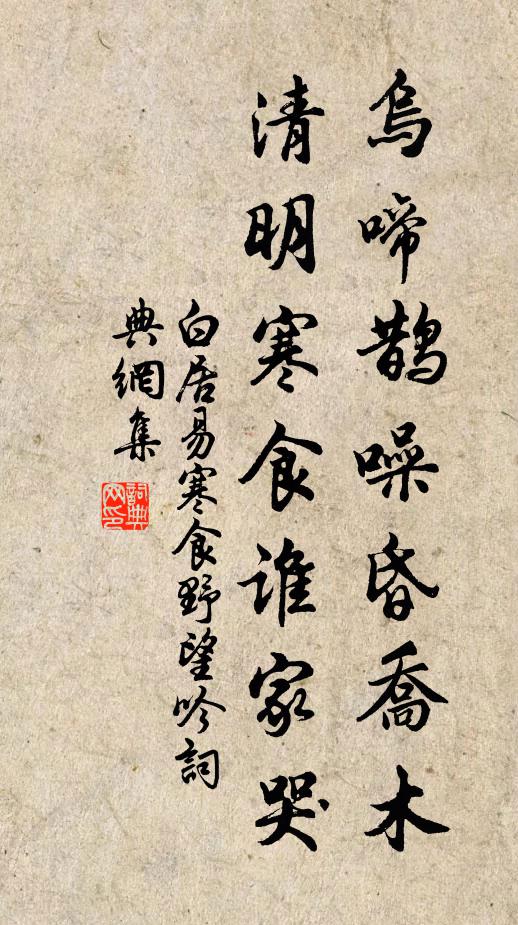 烏啼鹊噪昏喬木
清明寒食誰家哭
白居易寒食野望吟詞
典網集
詞典網印